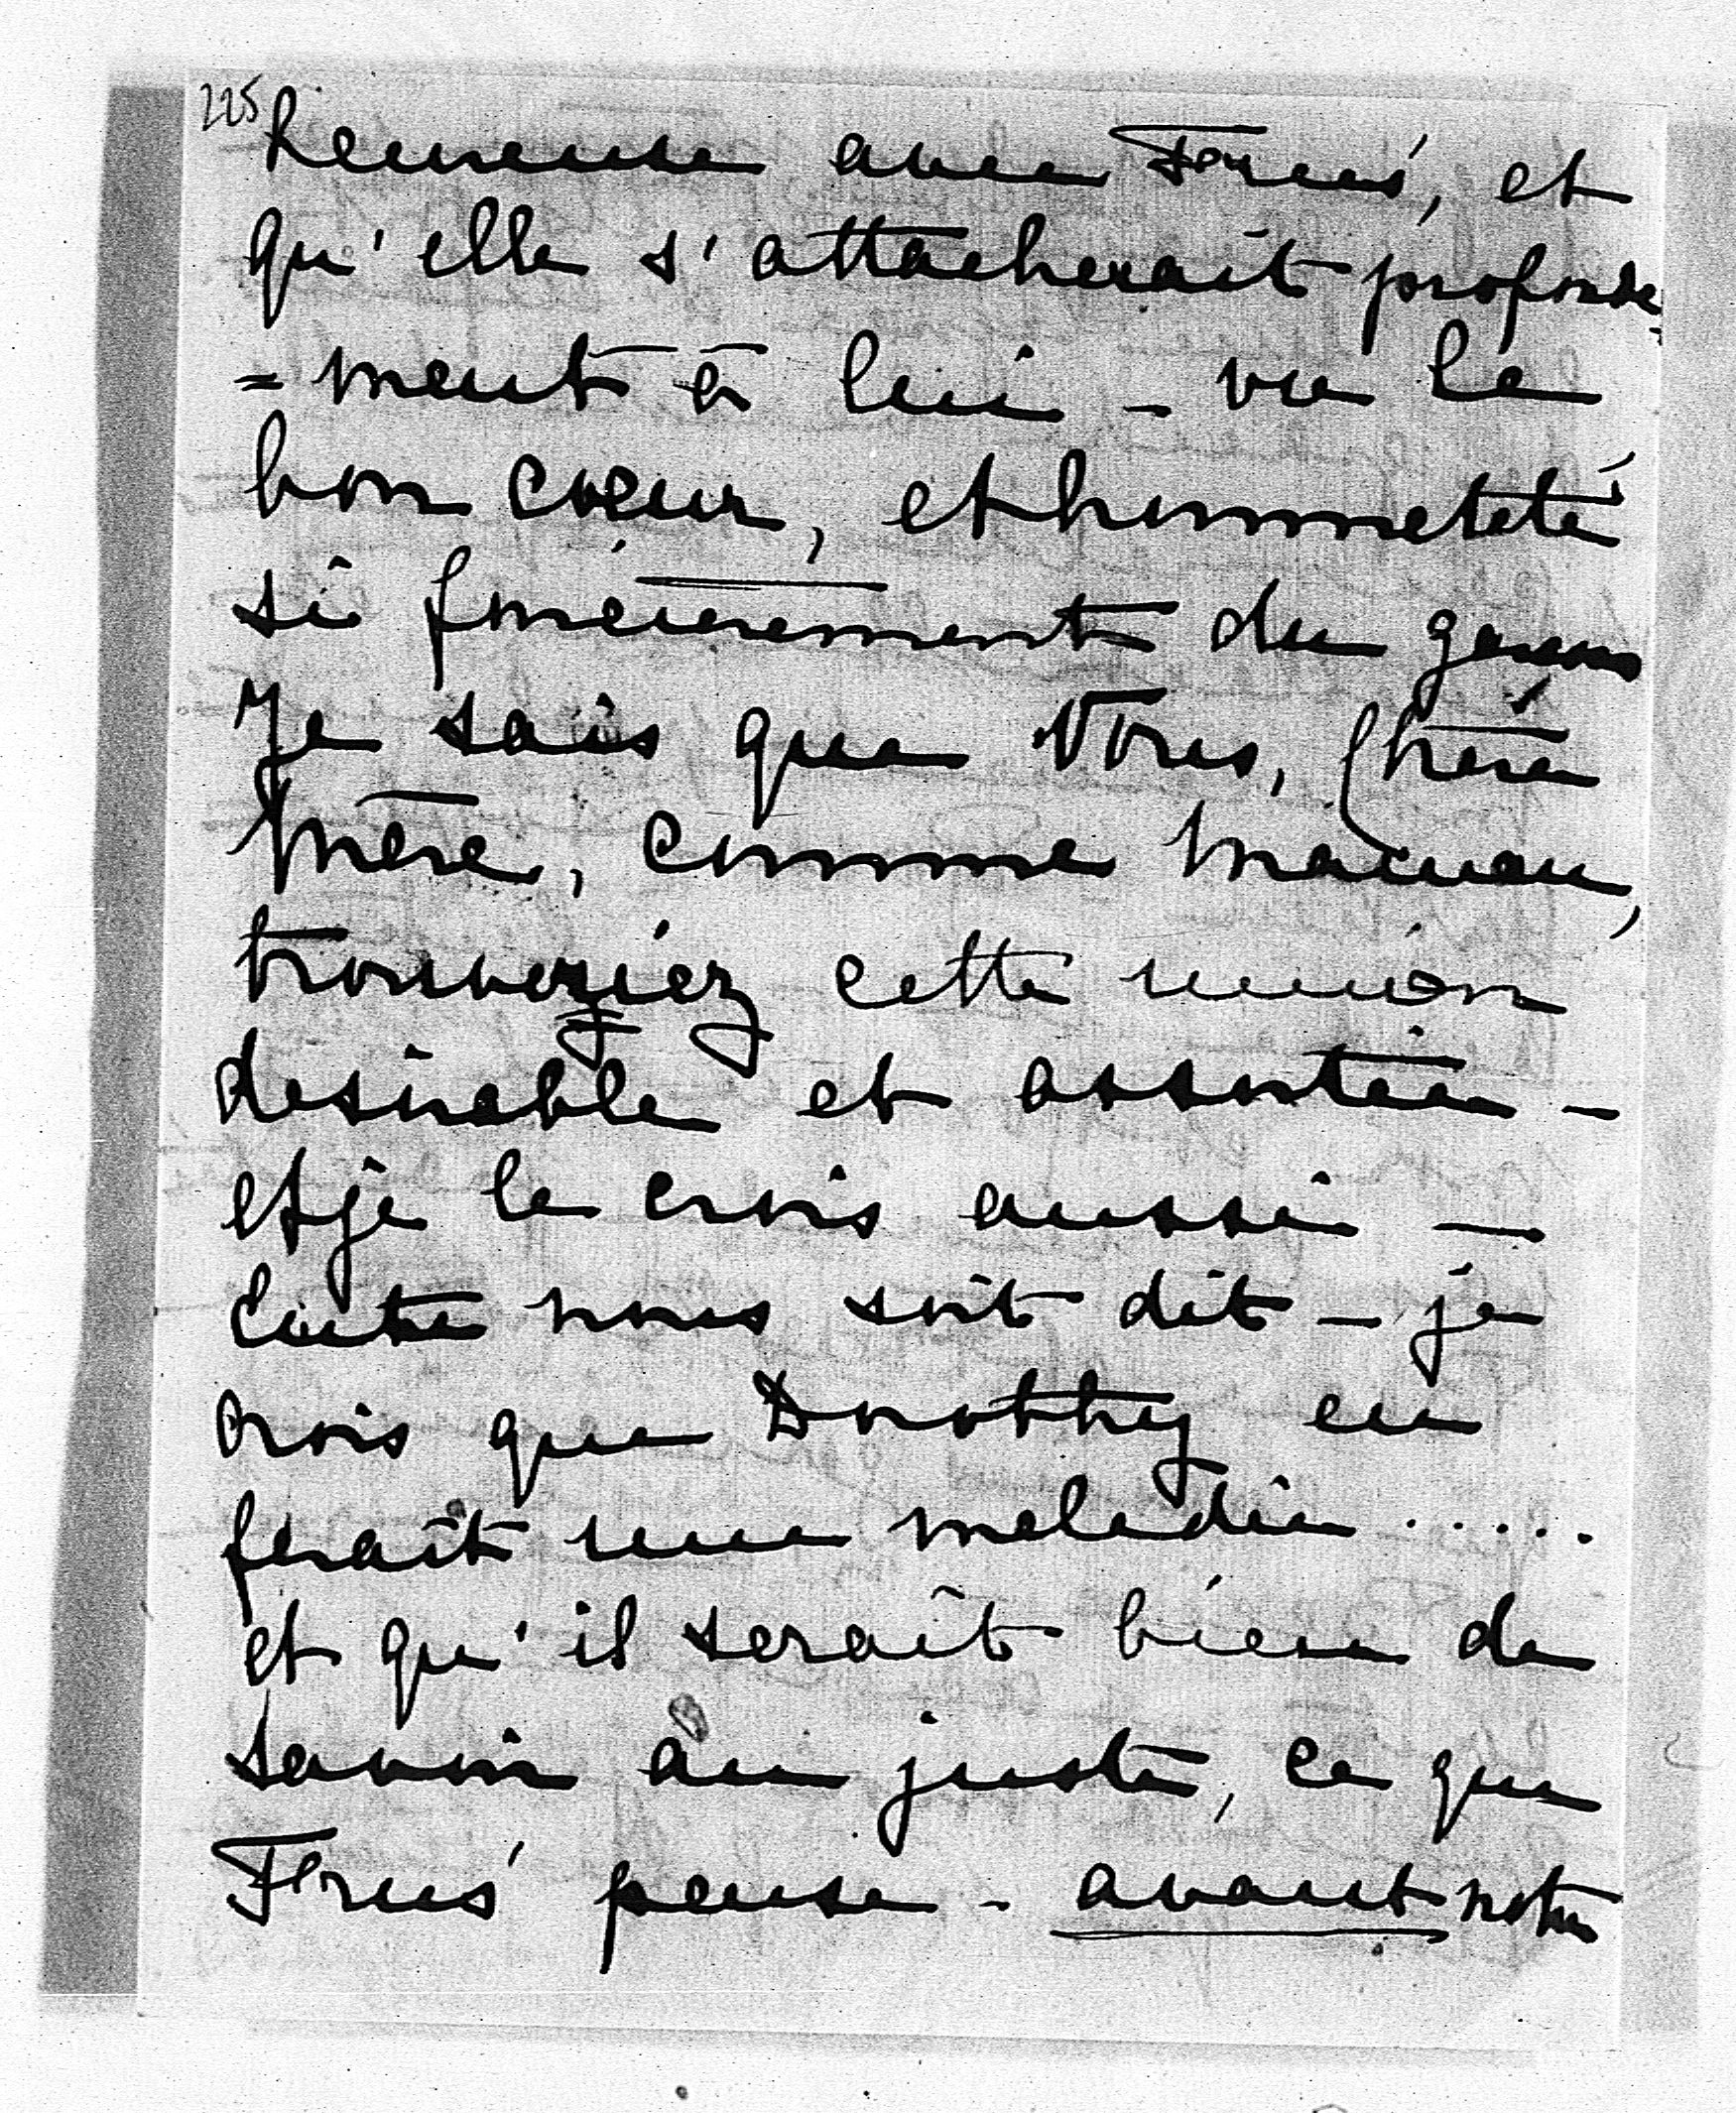 225
heureuse avec Ferus', et
qu'elle s'attacherait profonde
= ment à lui – vu le
bon cœur, et honneteté
si foncièrement du
Je sais que Vous, Chère
Mère, comme Maman,
trouveriez cette union
desirable et assortie –
et je le crois aussi —
Entre nous soit dit – je
crois que Dorothy en
ferait une maladie . . . . .
et qu'il serait bien de
savoir au juste, ce que
pense – avant notre